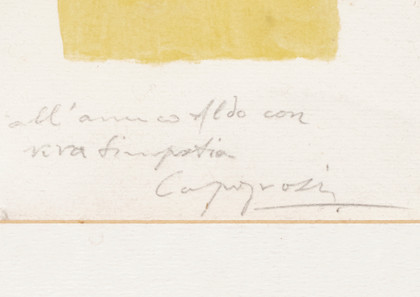 all'amico Aldo con
vera simpatia
Capogrossi